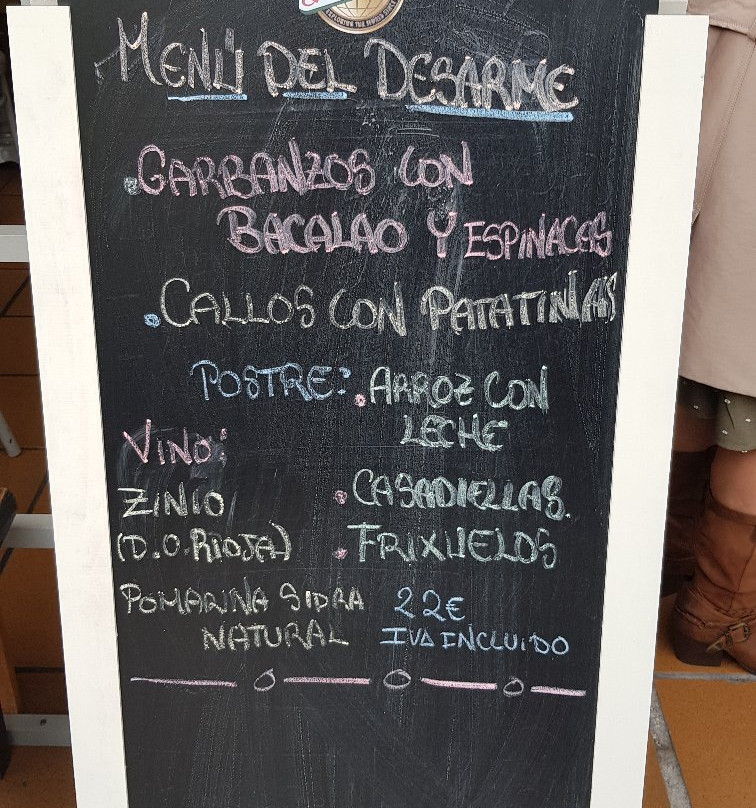 MENÚ DEL DESARME
.GARBANZOS CON
BACALAO Y ESPINACAS
.CALLOS CON PATATINAS
POSTRE: .ARROZ CON
LECHE
VINO:
ZINIO
(D.O.RIOJA)
.CASADIELLAS.
.FRIXUELOS
POMARINA SIDRA
NATURAL
22€
IVA INCLUIDO